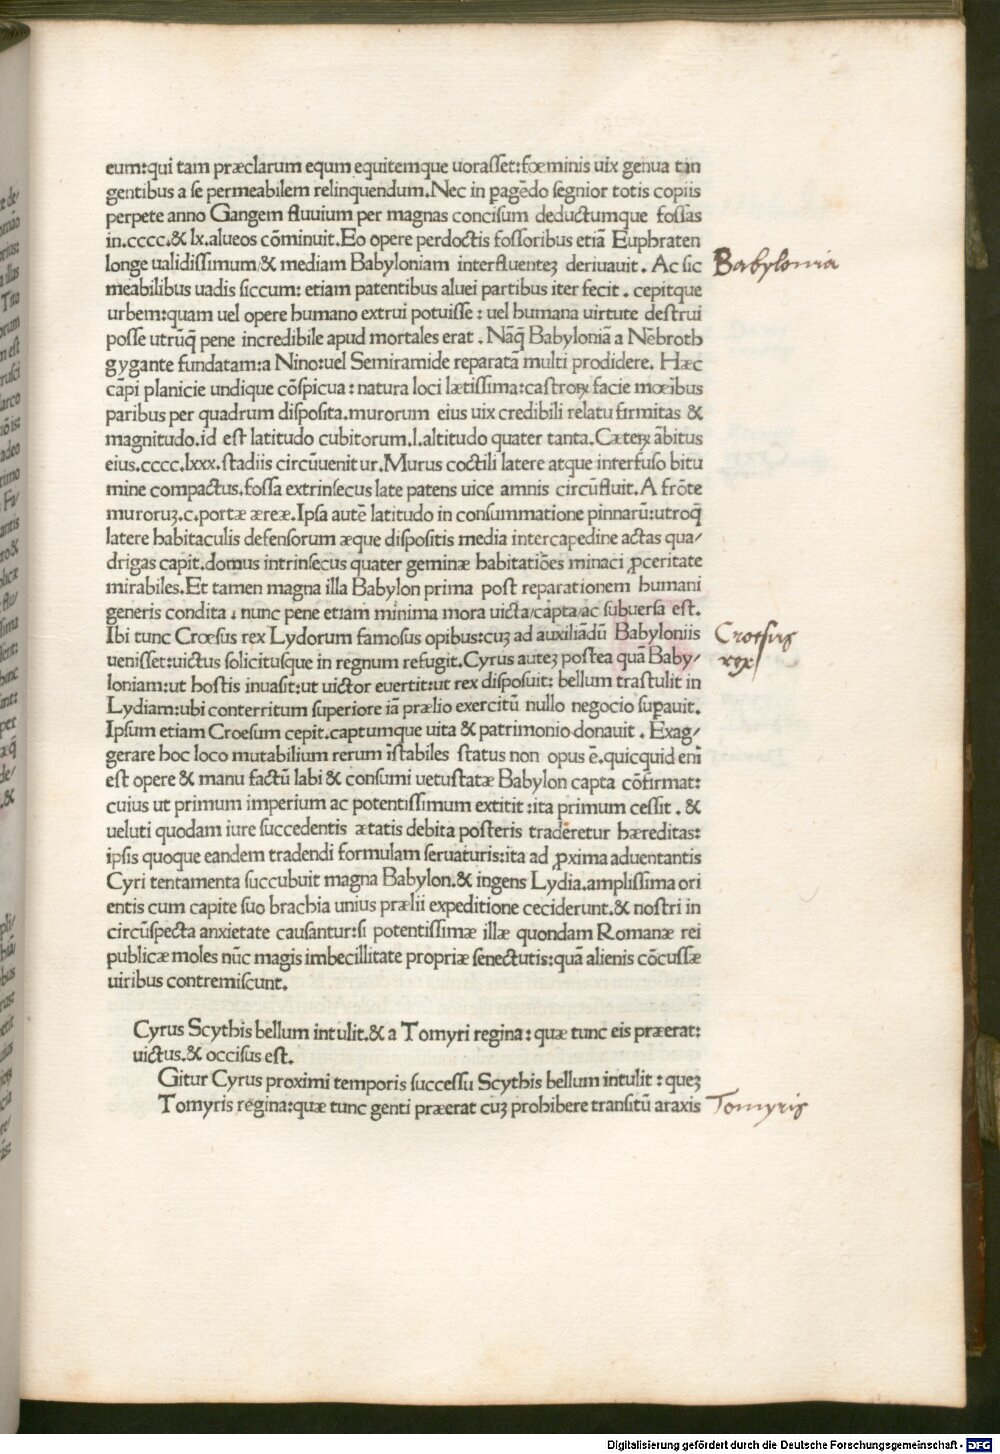 eum:qui tam præclarum equm equitemque uorasset:fœminis uix genua tan
gentibus a se permeabilem relinquendum.Nec in pagēdo segnior totis copiis
perpete anno Gangem fluuium per magnas concisum deductumque fossas
in.cccc.& lx.alueos cōminuit.Eo opere perdoctis fossoribus etiā Euphraten
longe ualidissimum/& mediam Babyloniam interfluenteꝫ deriuauit. Ac sic
Babylonia
meabilibus uadis siccum: etiam patentibus aluei partibus iter fecit. cepitque
urbem:quam uel opere humano extrui potuisse: uel humana uirtute destrui
posse utrūq̄ pene incredibile apud mortales erat. Nāq̄ Babyloniā a Nēbroth
gygante fundatam:a Nino:uel Semiramide reparatā multi prodidere. Hæc
cāpi planicie undique cōspicua: natura loci lætissima:castroꝝ facie mœibus
paribus per quadrum disposita.murorum eius uix credibili relatu firmitas &
magnitudo.id est latitudo cubitorum.l.altitudo quater tanta.Cæteꝝ ābitus
eius.cccc.lxxx.stadiis circūuenitur.Murus coctili latere atque interfuso bitu
mine compactus.fossa extrinsecus late patens uice amnis circūfluit.A frōte
muroruꝫ.c.portæ æreæ.Ipsa autē latitudo in consummatione pinnarū:utroq̄
latere habitaculis defensorum æque dispositis media intercapedine actas qua/
drigas capit.domus intrinsecus quater geminæ habitatiōes minaci ꝓceritate
mirabiles.Et tamen magna illa Babylon prima post reparationem humani
generis condita. nunc pene etiam minima mora uicta/capta/ac subuersa est.
Ibi tunc Crœsus rex Lydorum famosus opibus:cuꝫ ad auxiliādū Babyloniis
Croesus
uenisset:uictus solicitusque in regnum refugit.Cyrus auteꝫ postea quā Baby/
rex
loniam:ut hostis inuasit:ut uictor euertit:ut rex disposuit: bellum trastulit in
Lydiam:ubi conterritum superiore iā prælio exercitū nullo negocio supauit.
Ipsum etiam Croesum cepit.captumque uita & patrimonio donauit. Exag/
gerare hoc loco mutabilium rerum īstabiles status non opus ē.quicquid enī
est opere & manu factū labi & consūmi uetustatæ Babylon capta cōfirmat:
cuius ut primum imperium ac potentissimum extitit:ita primum cessit. &
ueluti quodam iure succedentis ætatis debita posteris traderetur hæreditas:
ipsis quoque eandem tradendi formulam seruaturis:ita ad ꝓxima aduentantis
Cyri tentamenta succubuit magna Babylon.& ingens Lydia.amplissima ori
entis cum capite suo brachia unius prælii expeditione ceciderunt.& nostri in
circūspecta anxietate causantur:si potentissimæ illæ quondam Romanæ rei
publicæ moles nūc magis imbecillitate propriæ senectutis:quā alienis cōcussæ
uiribus contremiscunt.
Cyrus Scythis bellum intulit.& a Tomyri regina: quæ tunc eis præerat:
uictus.& occisus est.
Gitur Cyrus proximi temporis successu Scythis bellum intulit: queꝫ
Tomyris regina:quæ tunc genti præerat cuꝫ prohibere transitū araxis
Tomyris
Digitalisierung gefördert durch die Deutsche Forschungsgemeinschaft - DFG